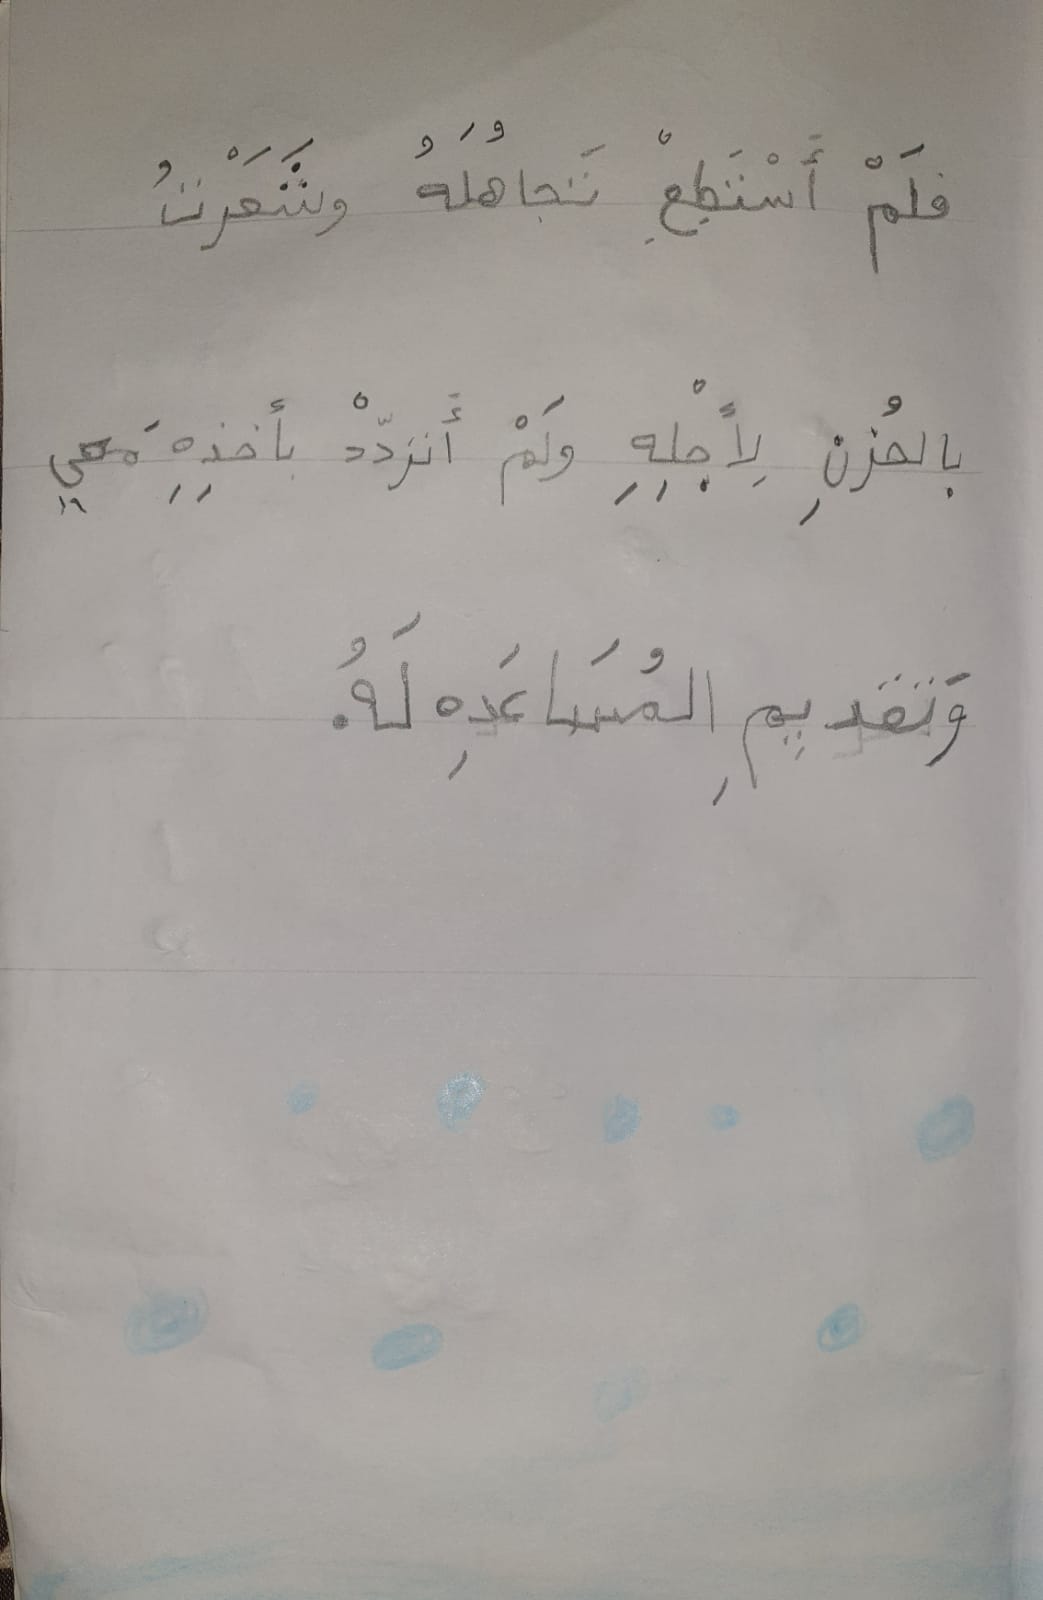 فلَمْ أَسْتَطِعِْ تَجاهُلَهُ وشَعَرْتُ
بالحُزْنِ لِأَجْلِهِ ولَمْ أَتردّدْ بأخذِهِ مَعي
وَتَقديمِ المُسَاعَدهِ لَهُ.